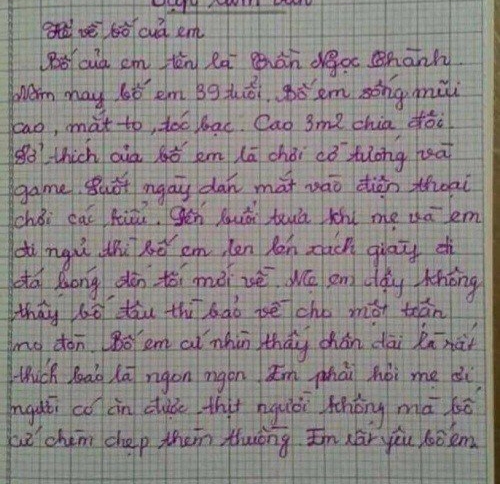 Tập làm văn
Tả về bố của em
Bố của em tên là Trần Ngọc Thành.
Năm nay bố em 39 tuổi. Bố em sống mũi
cao, mắt to, tóc bạc. Cao 3m2 chia đôi.
Sở thích của bố em là chơi cờ tướng và
game. Suốt ngày dán mắt vào điện thoại
chơi các kiểu. Đến buổi trưa khi mẹ và em
đi ngủ thì bố em len lén xách giày đi
đá bóng đến tối mới về. Mẹ em dậy không
thấy bố đâu thì bảo về cho một trận
no đòn. Bố em cứ nhìn thấy chân dài là rất
thích bảo là ngon ngon. Em phải hỏi mẹ ơi
người có ăn được thịt người không mà bố
cứ chẹm chẹp thèm thuồng. Em rất yêu bố em